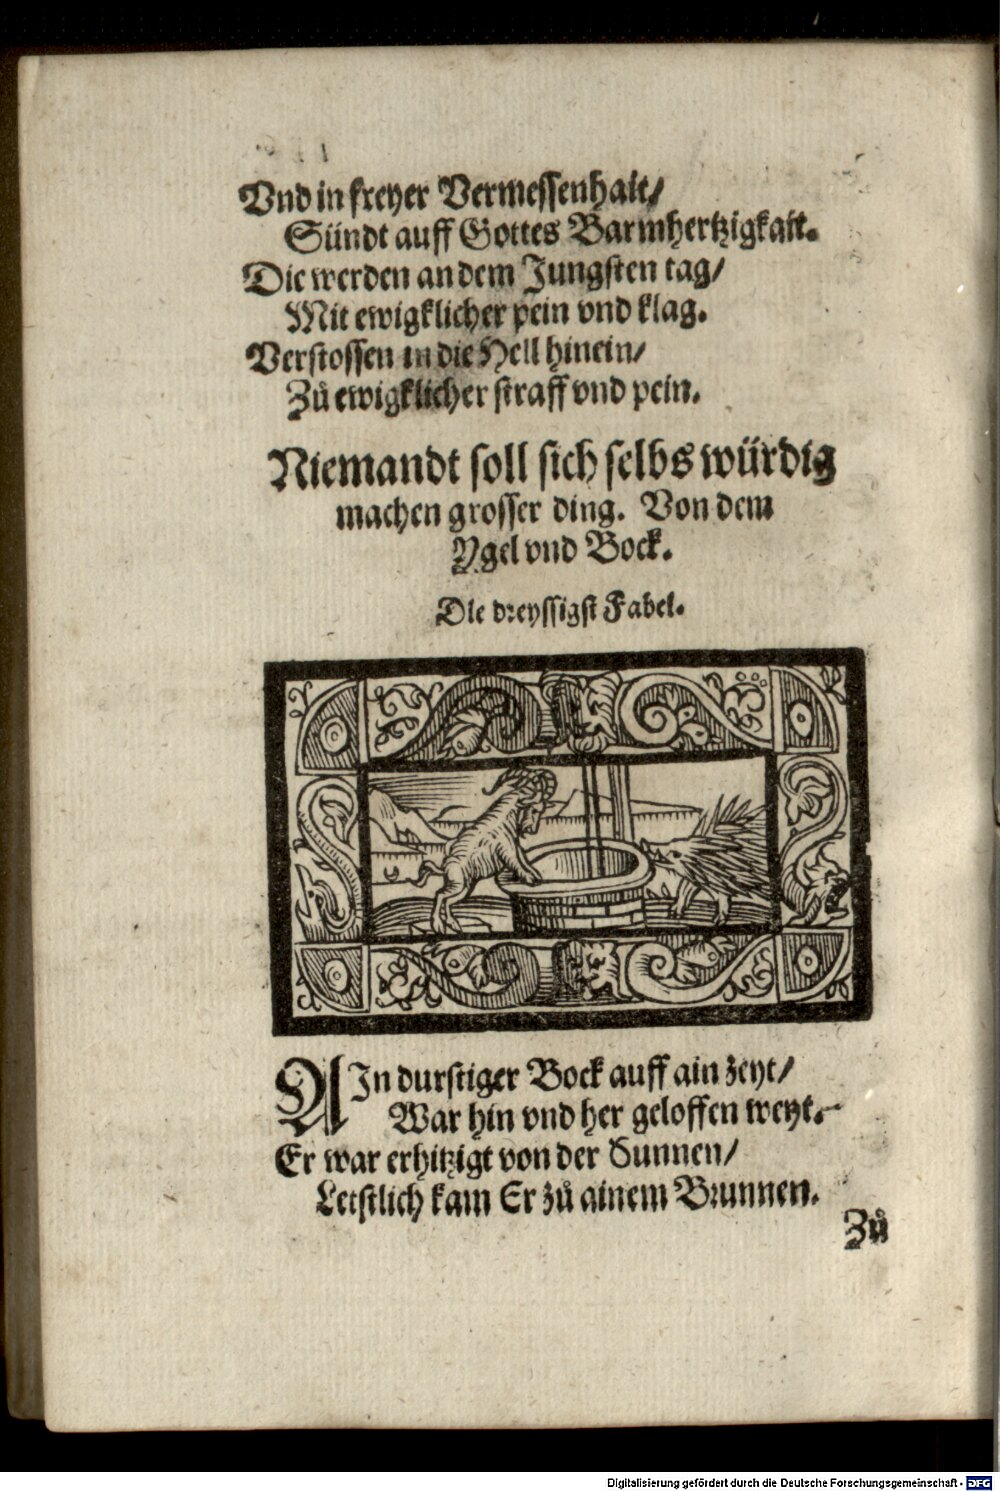 Vnd in freyer Vermessenhait/
Sündt auff Gottes Barmhertzigkait.
Die werden an dem Jungsten tag/
Mit ewigklicher pein vnd klag.
Verstossen in die Hell hinein/
Zů ewigklicher straff vnd pein.
Niemandt soll sich selbs würdig
machen grosser ding. Von dem
Ygel vnd Bock.
Die dreyssigst Fabel.
AIn durstiger Bock auff ain zeyt/
War hin vnd her geloffen weyt.
Er war erhitzigt von der Sunnen/
Letstlich kam Er zů ainem Brunnen.
Zů
Digitalisierung gefördert durch die Deutsche Forschungsgemeinschaft - DFG